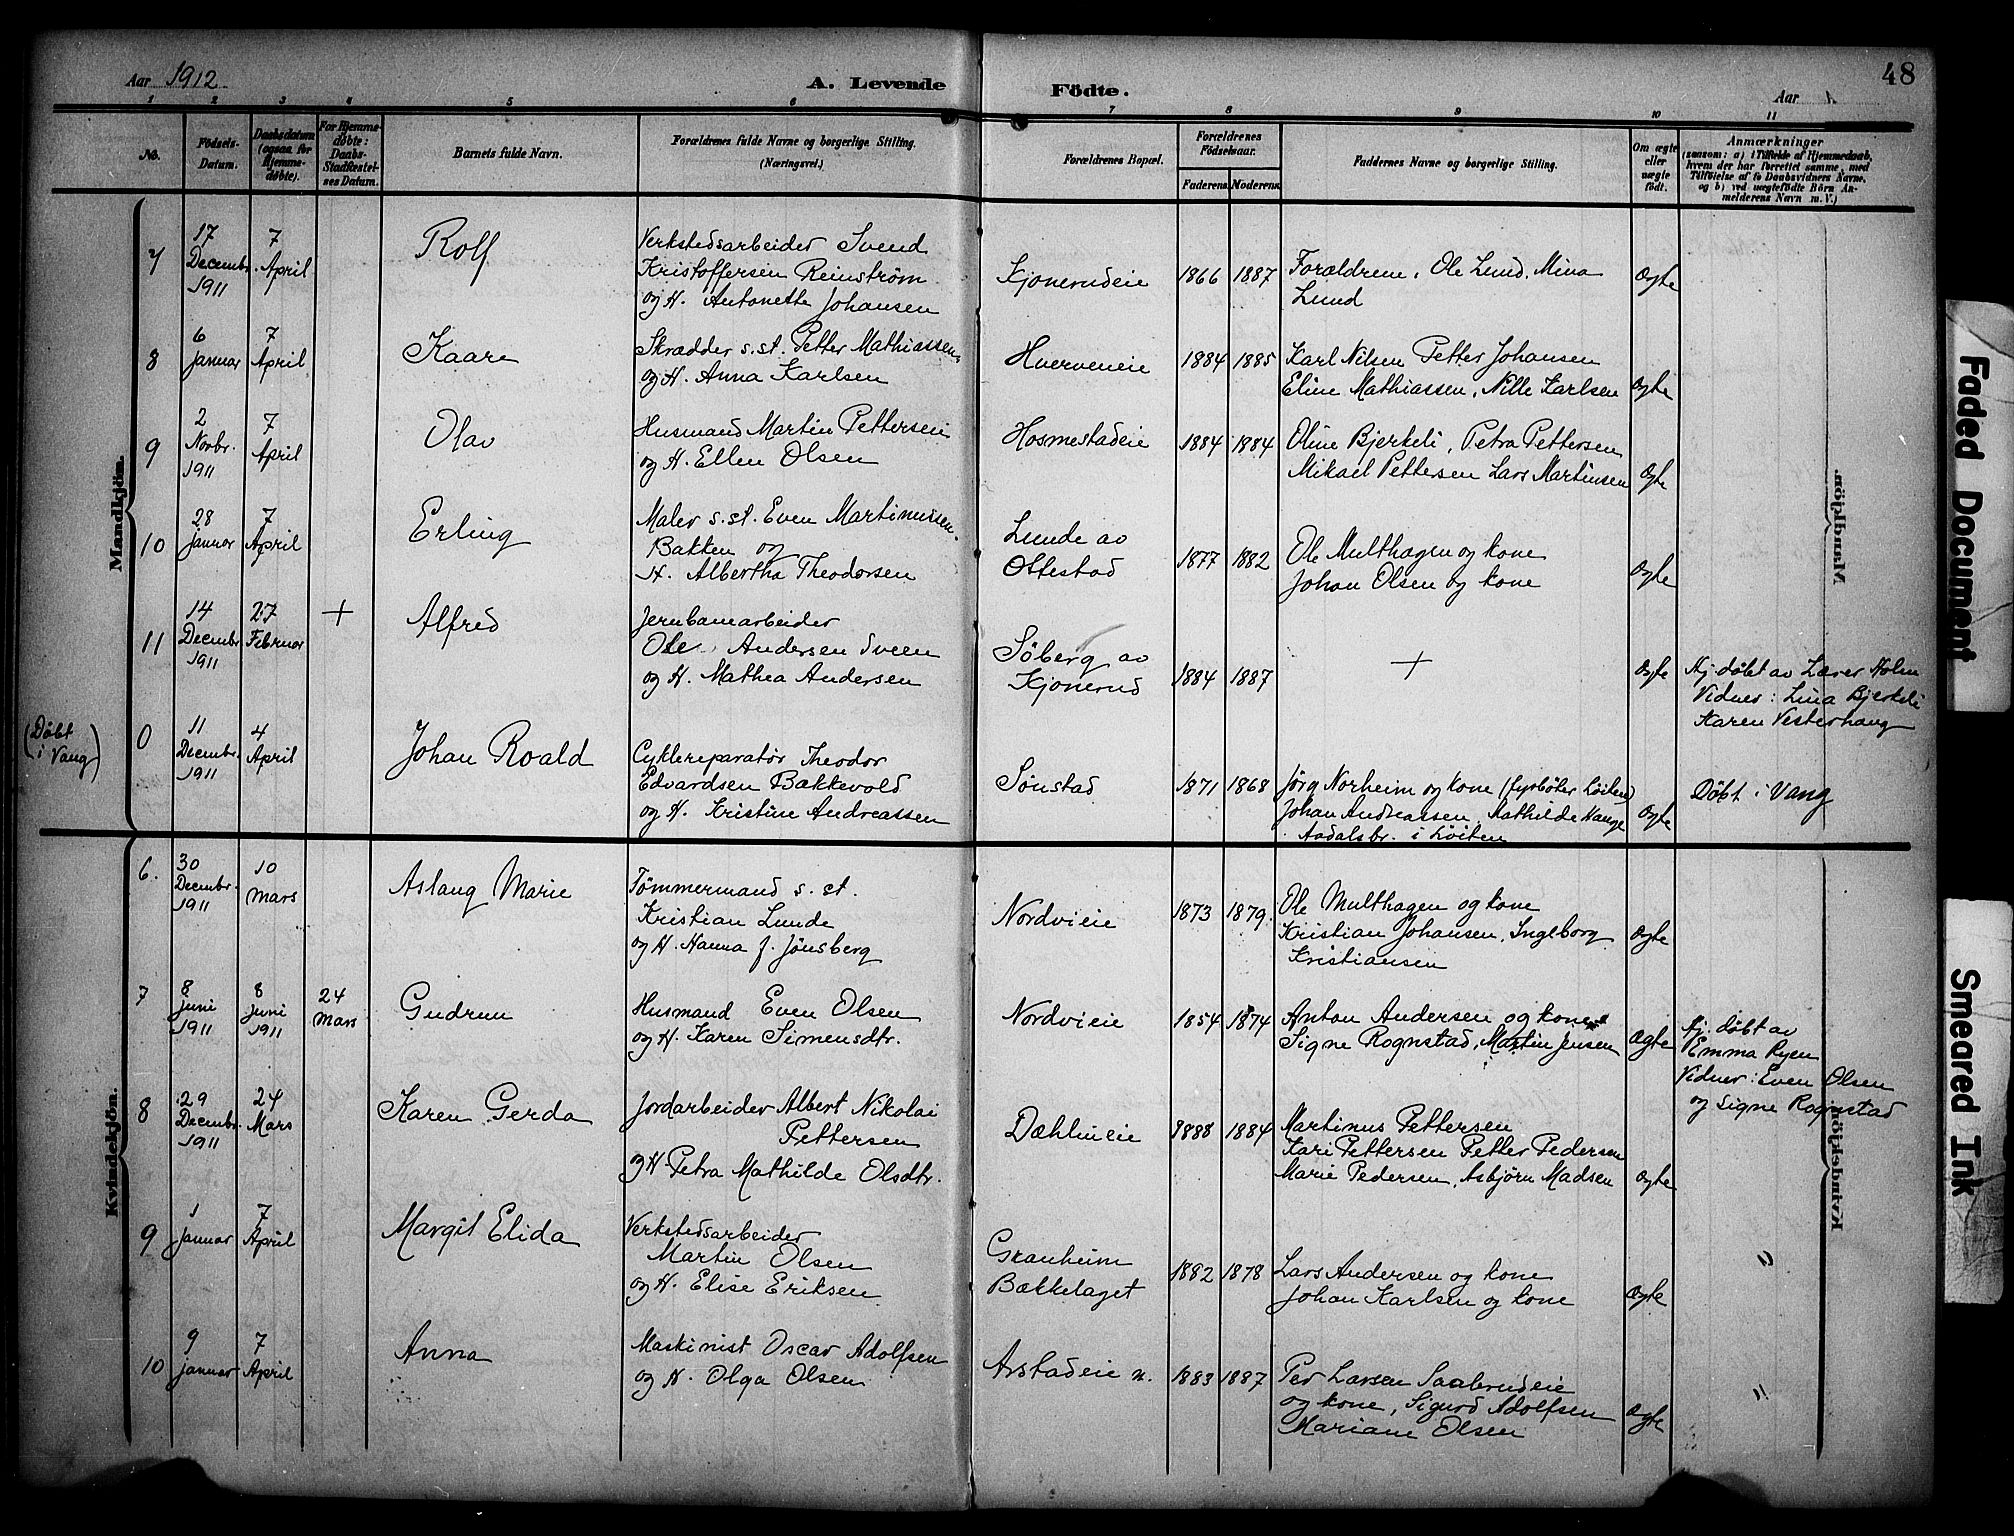 Aar 1912
A. Levende
Födte.
Aar
48
1 2 3 4 5 6 7 8 9 10 11
No.
Födsels-
Datum.
Daabsdatum
(ogsaa for
Hjemme-
döbte).
For Hjemme-
døbte:
Daabs-
Stadfæstel-
ses Datum.
Barnets fulde Navn.
Forældrenes fulde Navne og borgerlige Stilling.
(Næringsvei.)
Forældrenes Bopæl.
Forældrenes
Födselsaar.
Faderens.
Moderens.
Faddernes Navne og borgerlige Stilling.
Om ægte
eller
uægte
födt.
Anmærkninger
(saasom: a) i Tilfælde af Hjemmedaab,
hvem der har forrettet samme, med
Tilföielse af to Daabsvidners Navne,
og b) ved uægtefödte Börn An-
melderens Navn m. V.)
Mandkjön.
7
17
Decembr.
1911
7
April
Rolf
Verkstedsarbeider Svend
Kristoffersen Reinström
og H. Antonette Johansen
Kjonerudeie
1866
1887
Forældrene, Ole Lund, Mina
Lund
Ægte
8
6
Januar
7
April
Kaare
Skrædder s.st. Petter Mathiassen
og H. Anna Karlsen
Hverveneie
1884
1885
Karl Nilsen Petter Johansen
Eline Mathiassen, Nille Karlsen
Ægte
9
2
Novbr.
1911
7
April
Olav
Husmand Martin Pettersen
og H. Ellen Olsen
Hosmestadeie
1884
1884
Oline Bjerkeli, Petra Pettersen
Mikael Pettersen Lars Martinsen
Ægte
10
28
Januar
7
April
Erling
Maler s.st. Even Martinussen
Bakken og
H. Albertha Theodorsen
Lunde av
Ottestad
1877
1882
Ole Multhagen og kone
Johan Olsen og kone
Ægte
11
14
Decembr
1911
27
Februar
+
Alfred
Jernbanearbeider
Ole Andersen Sveen
og H. Mathea Andersen
Söberg av
Kjonerud
1884
1887
+
Ægte
Hj. döbt av Lærer Holm
Vidner: Lina Bjerkeli
Karen Vesterhaug
(Döbt
i Vang)
0
11
Decembr.
1911
4
April
Johan Roald
Cyklereparatør Theodor
Edvardsen Bækkevold
og H. Kristine Andreassen
Sönstad
1871
1868
Jörg Norheim og kone (fyrböter Löiten)
Johan Andreassen, Mathilde Hauge
Aadalsbr. i Löiten
Ægte
Döbt i Vang
Mandkjön.
Kvindekjön.
6.
30
Decembr.
1911
10
Mars
Aslaug Marie
Tömmermand s. st.
Kristian Lunde
og H. Hanna f. Jönsberg
Nordvieie
1873
1879.
Ole Multhagen og kone
Kristian Johansen, Ingeborg
Kristiansen
Ægte
7
8
Juni
1911
8
Juni
1911
24
Mars
Gudrun
Husmand Even Olsen
og H. Karen Simensdtr.
Nordvieie
1854
1874
Anton Andersen og kone
Signe Rognstad, Martin Jensen
Ægte
Hj. döbt av
Emma Ryen
Vidner: Even Olsen
og Signe Rognstad
8
29
Decembr.
1911
24
Mars
Karen Gerda
Jordarbeider Albert Nikolai
Pettersen
og H. Petra Mathilde Olsdtr.
Dæhlineie
1888
1884
Martinus Pettersen
Kari Pettersen Petter Pedersen
Marie Pedersen, Asbjörn Madsen
Ægte
9
1
Januar
7
April
Margit Elida
Verkstedsarbeider
Martin Olsen
og H. Elise Eriksen
Granheim
Bækkelaget
1882
1878
Lars Andersen og kone
Johan Karlsen og kone
Ægte
"
10
9
Januar
7
April
Anna
Maskinist Oscar Adolfsen
og H. Olga Olsen
Arstadeie n.
1883
1887
Per Larsen Saaberudeie
og kone, Sigurd Adolfsen
Mariane Olsen
Ægte
"
Kvindekjön.
Faded Document
Smeared Ink